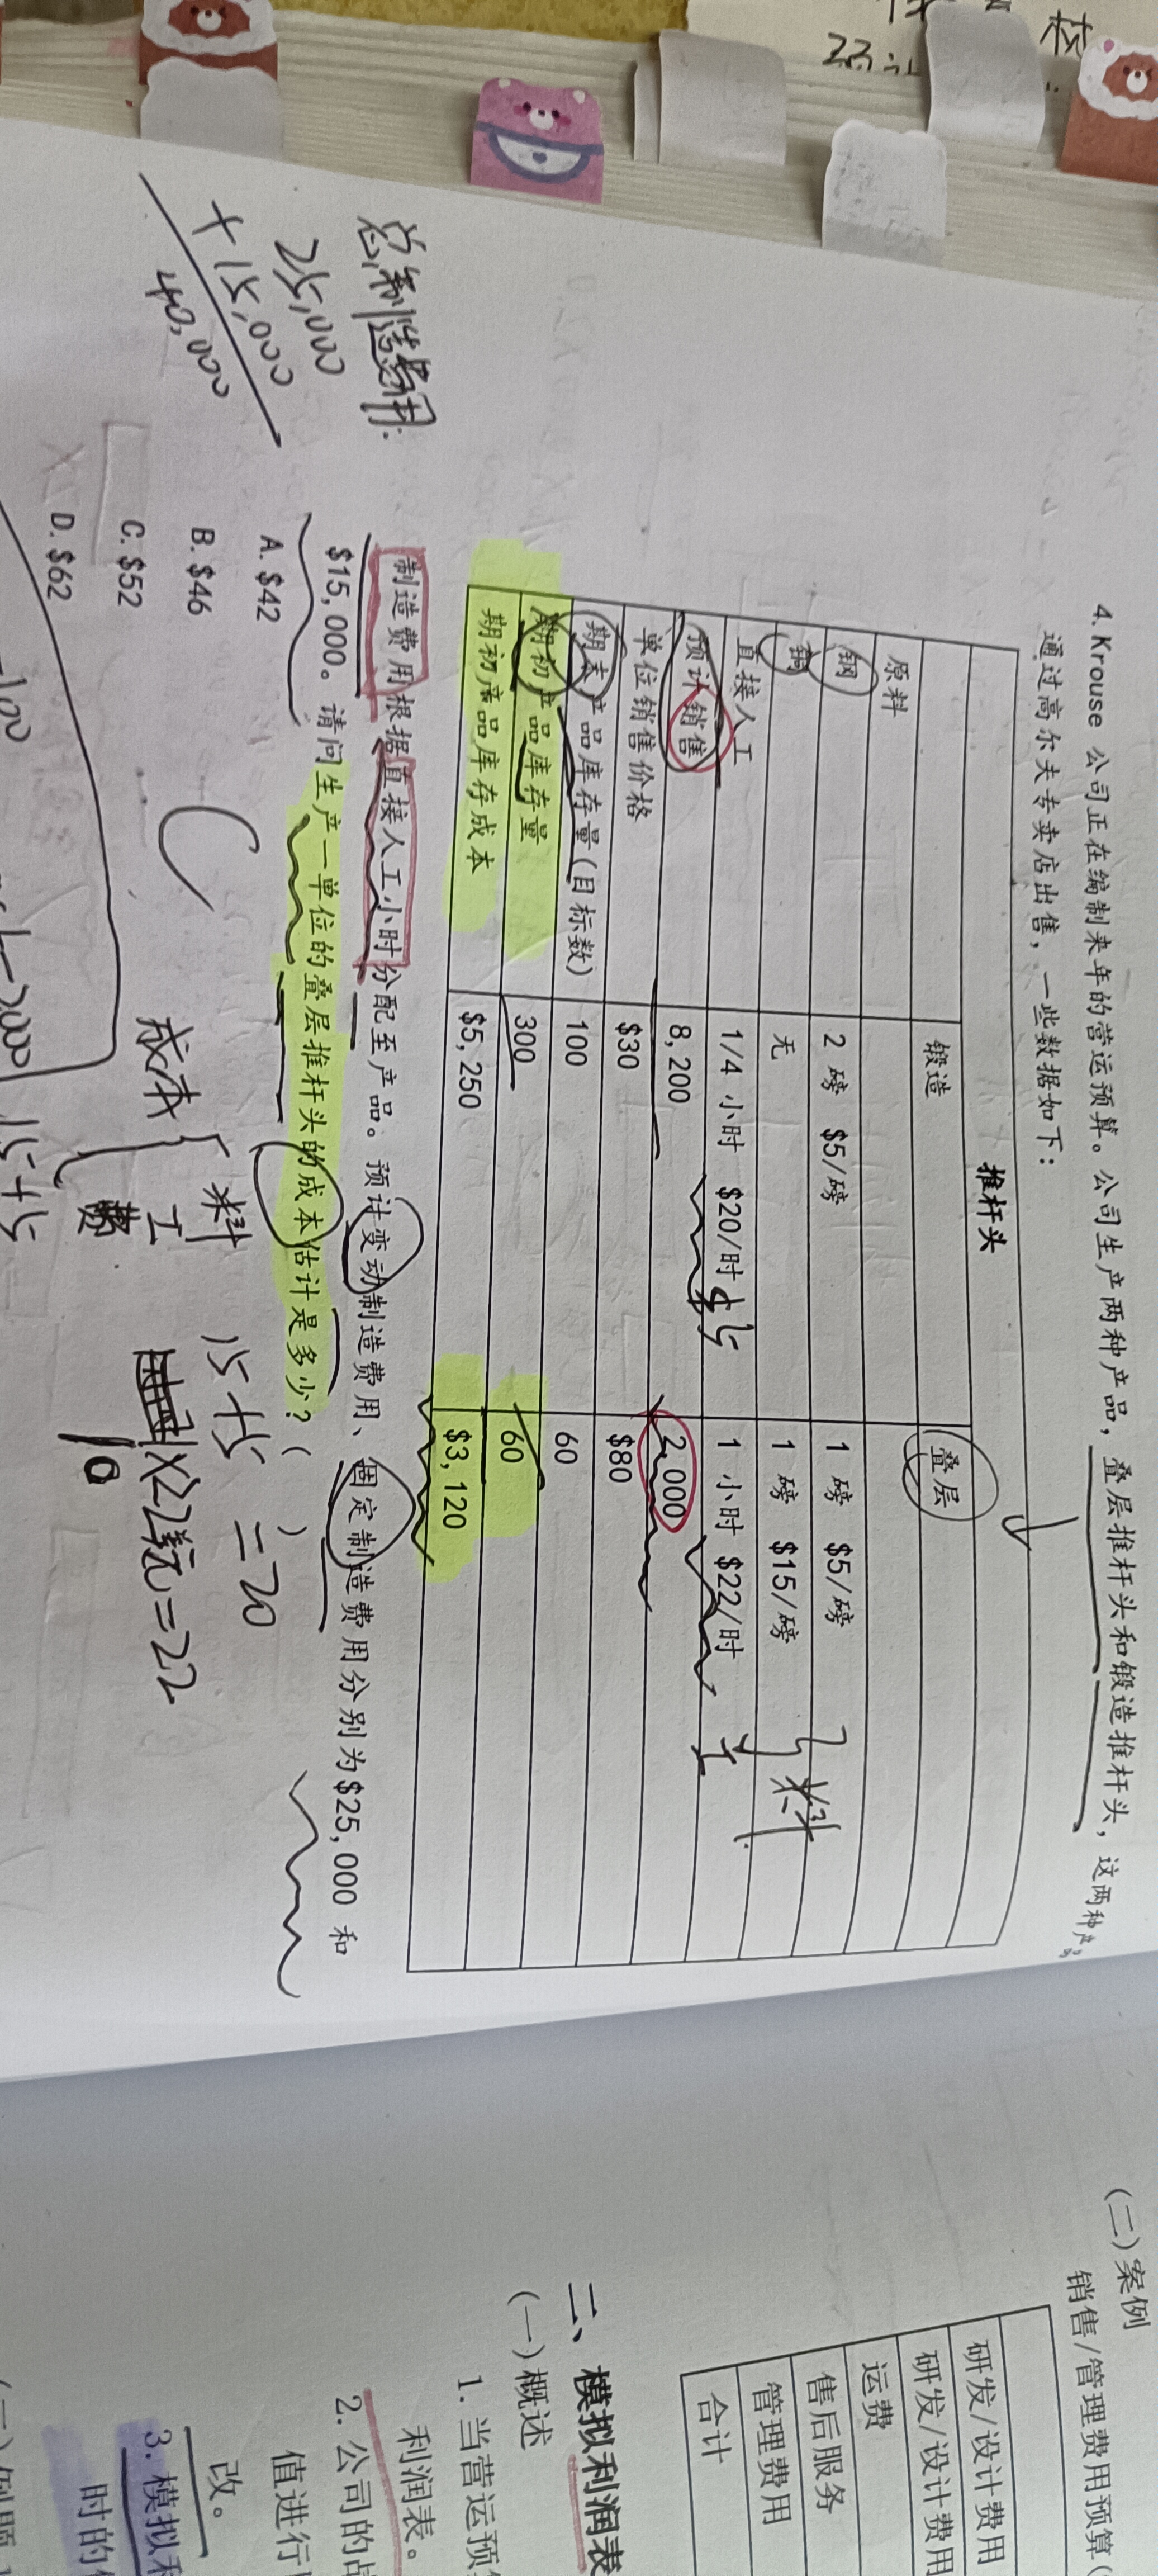 4. Krouse 公司正在编制来年的营运预算。公司生产两种产品，叠层推杆头和锻造推杆头，这两种产品
通过高尔夫专卖店出售，一些数据如下：
推杆头
锻造 叠层
原料
钢 2 磅 $5/磅 1 磅 $5/磅
铜 无 1 磅 $15/磅
料
直接人工 1/4 小时 $20/时 1 小时 $22/时
工
预计销售 8,200 2,000
单位销售价格 $30 $80
期末产品库存量(目标数) 100 60
期初产品库存量 300 60
期初产品库存成本 $5,250 $3,120
制造费用根据直接人工小时分配至产品。预计变动制造费用、固定制造费用分别为$25,000 和
$15,000。请问生产一单位的叠层推杆头的成本估计是多少？( )
A. $42
B. $46
C. $52
D. $62
总制造费用:
25,000
+ 15,000
40,000
C
成本
料 15+5 =20
工 ×22美元=22
费 10
(二)案例
销售/管理费用预算
研发/设计费用
研发/设计费用
运费
售后服务
管理费用
合计
二、模拟利润表
(一)概述
1. 当营运预
利润表。
2. 公司的
值进行
改。
3. 模拟
时的